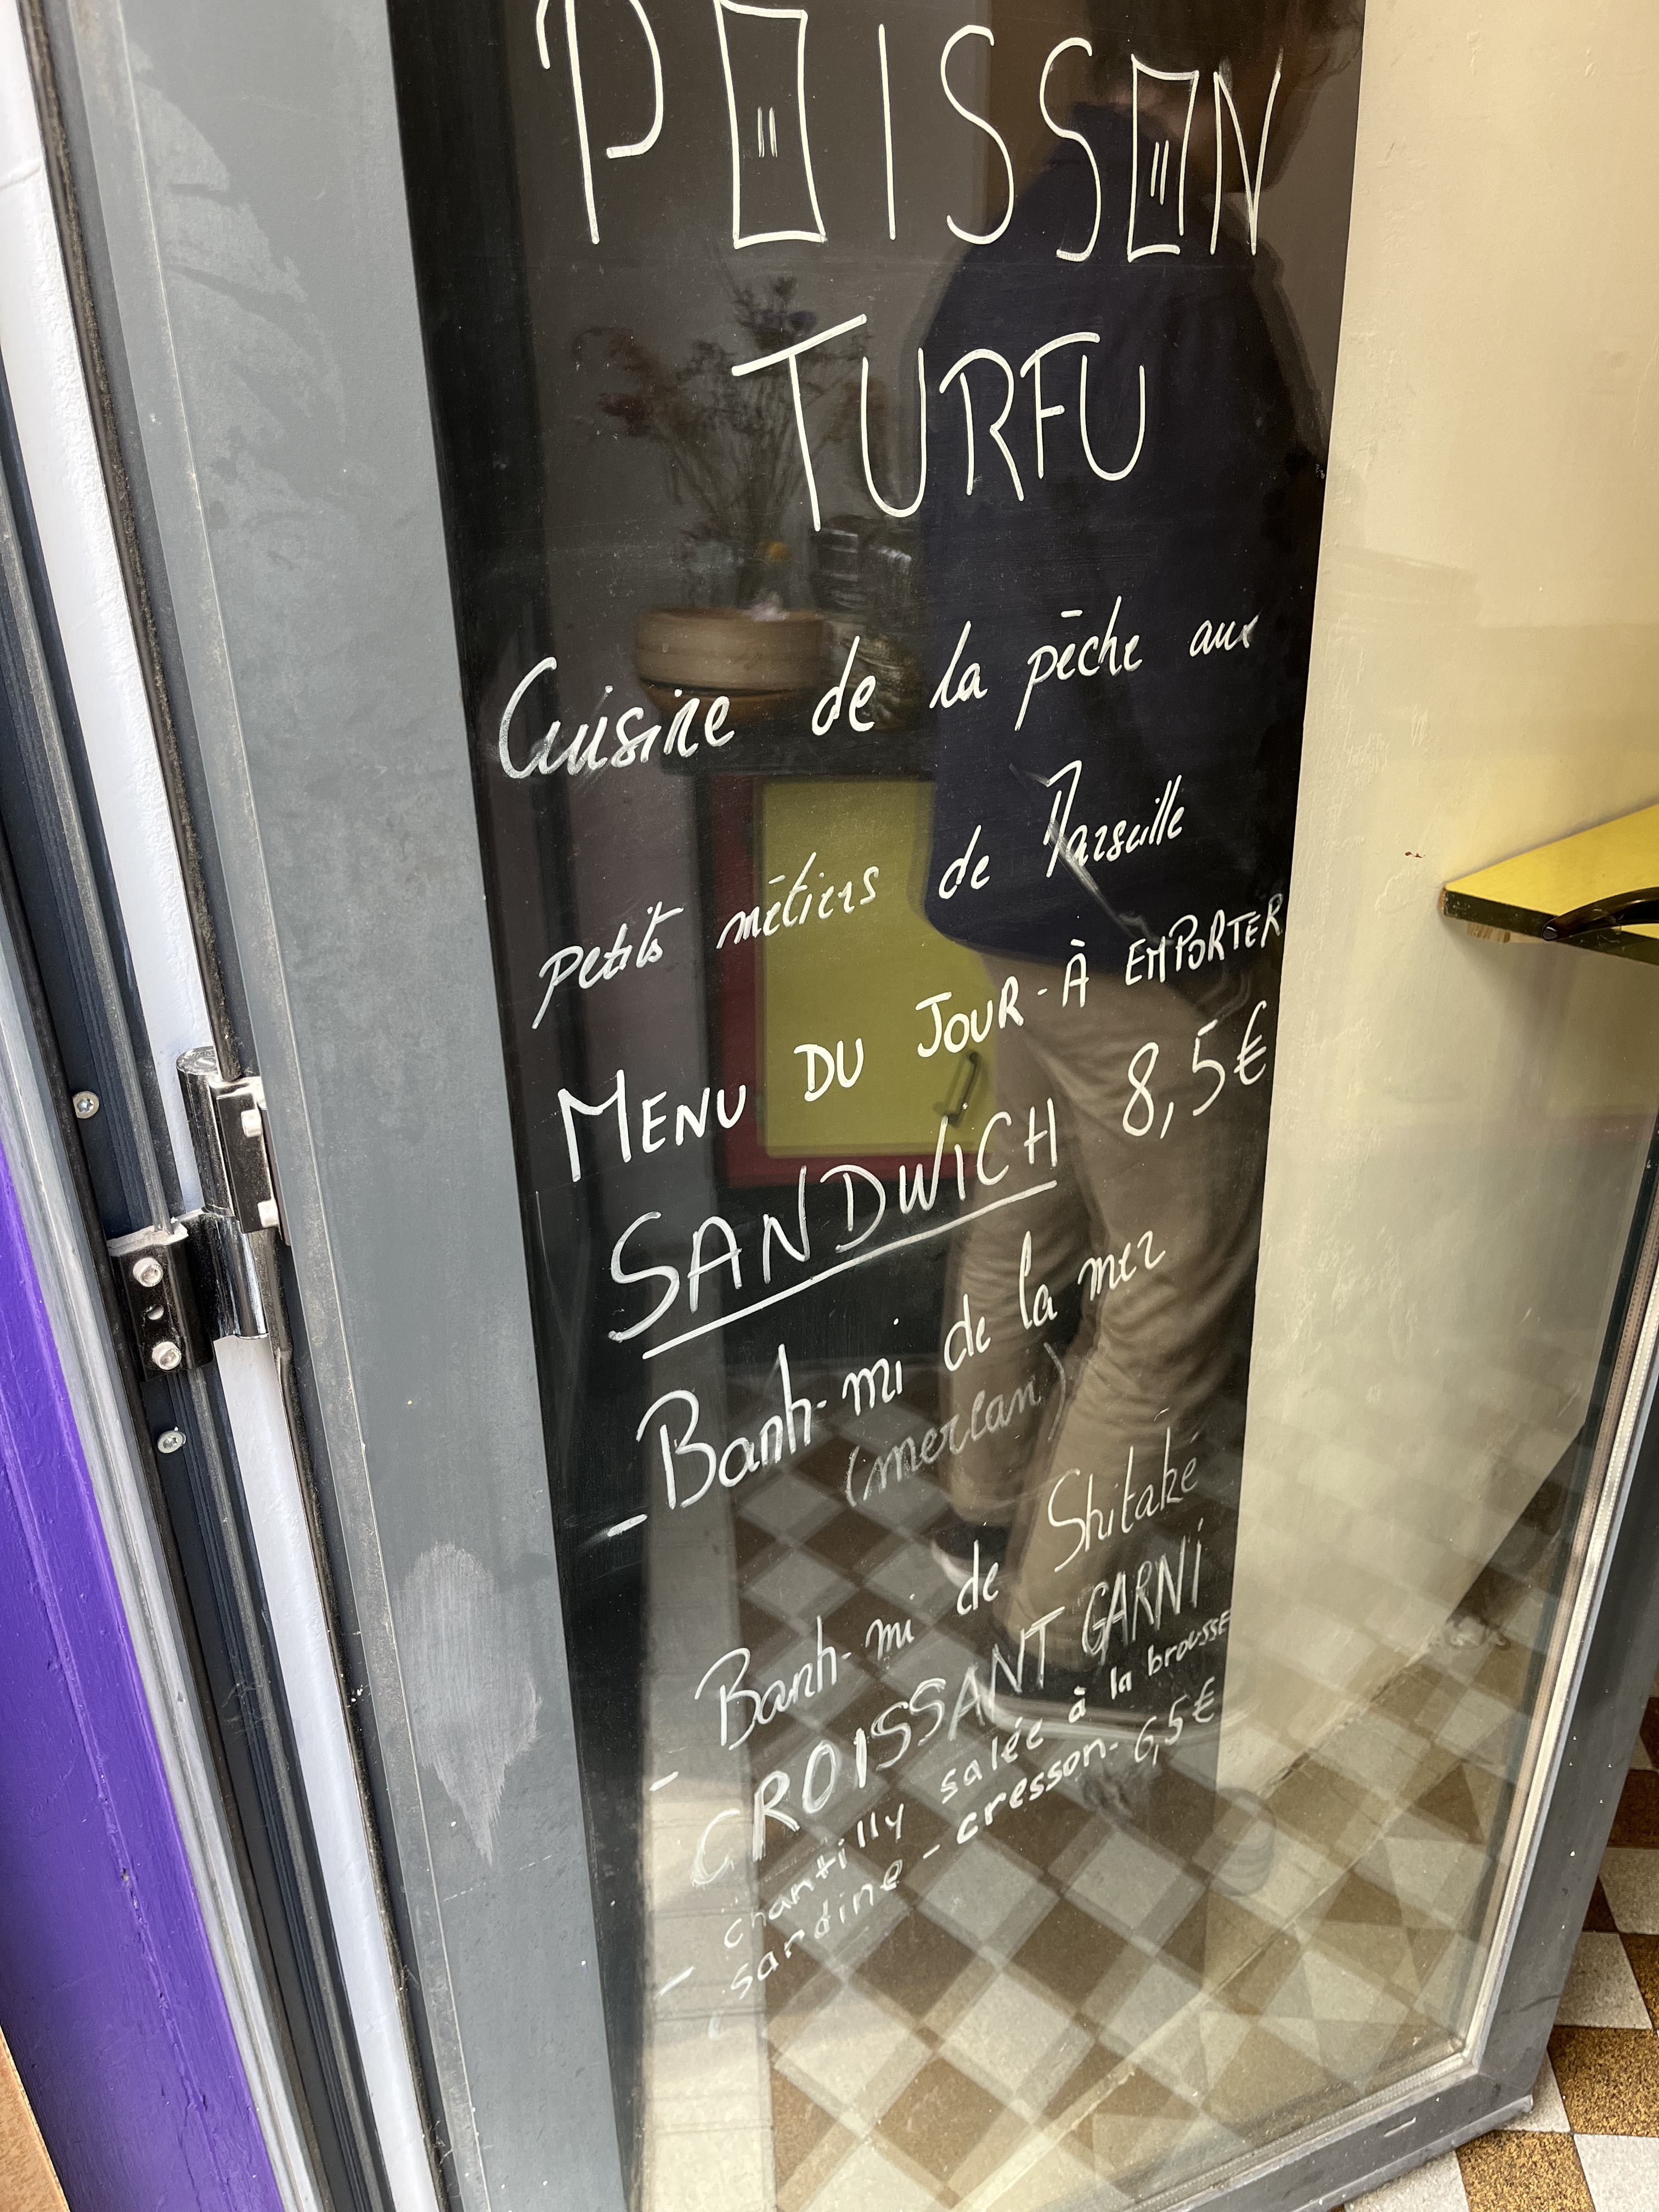 POISSON
TURFU
Cuisine de la pêche aux
petits métiers de Marseille
MENU DU JOUR - À EMPORTER
SANDWICH 8,5€
- Banh-mi de la mer
(merlan)
- Banh-mi de Shitaké
- CROISSANT GARNI
chantilly salée à la brousse
sardine - cresson - 6,5€